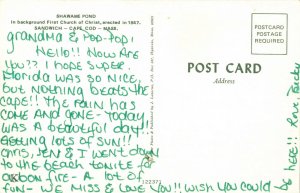 SHAWAME POND
In background First Church of Christ, erected in 1847.
SANDWICH - CAPE COD - MASS.
grandma & Pop-Pop!
Hello!! Now are
you?? I hope super.
Florida was so nice,
but nothing beats the
cape!! The rain has
come and gone - today
was a beautiful day!
getting lots of sun!!
Chris, Jen & I went down
to the beach took
fire - a lot of
fun - we miss & love you!! wish you could
be here!!
POST CARD
Address
POSTCARD
POSTAGE
REQUIRED
122371